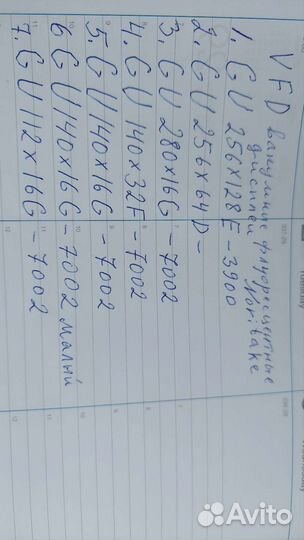 VFD вакуумные флуоресцентные
дисплеи Noritake
1. GU 256x128E-3900
2. GU 256x64D-
3. GU 280x16G-7002
4. GU 140x32F-7002
5. GU 140x16G-7002
6 GU 140x16G-7002 малый
7. GU 112x16G-7002
Avito